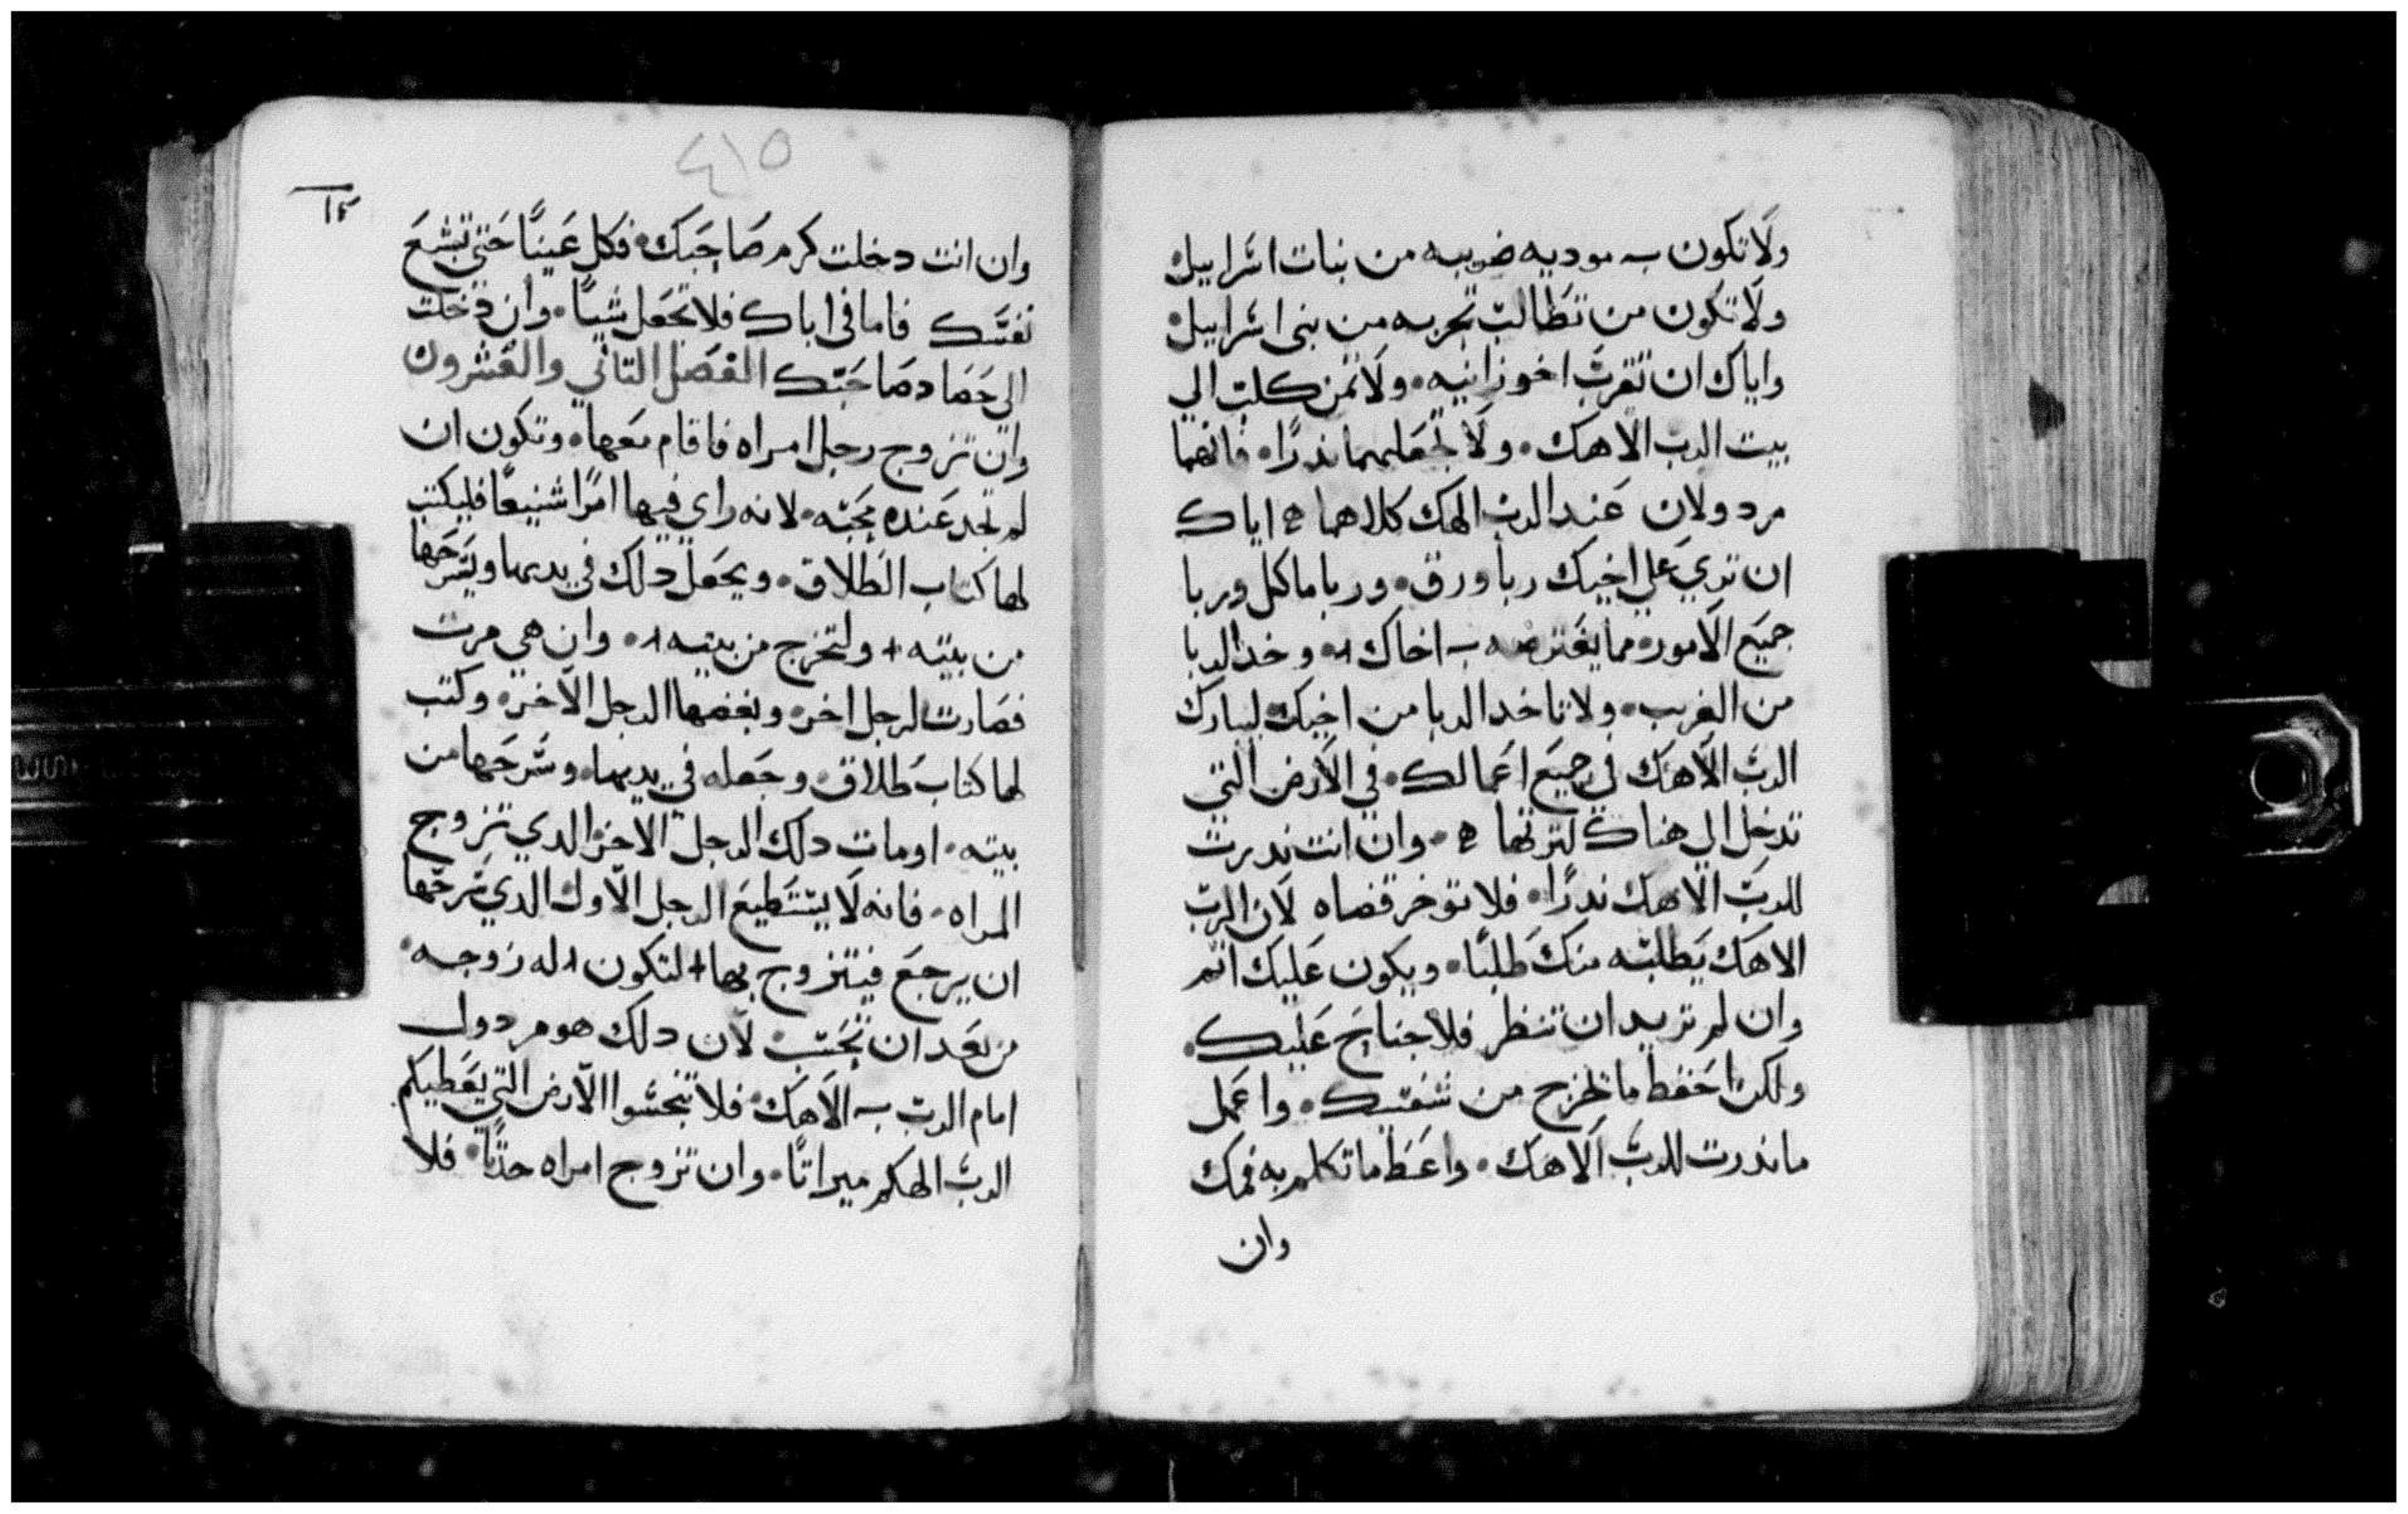 ولا تكون به موديه ضريبه من بنات اسراييل
ولا تكون من تطالب تجربه من بني اسراييل
واياك ان تقرب اخو زانيه ولا ثمن كلب الي
بيت الرب الاهك ولا تجعلهما ندرًا فانهما
مردولان عند الرب الهك كلاهما ه اياك
ان تربي علي اخيك ربا ورق وربا ماكل وربا
جميع الامور مما يقترضه به اخاك + وخد الربا
من الغريب ولا تاخد الربا من اخيك ليبارك
الرب الاهك في جميع اعمالك في الارض التي
تدخل الي هناك لترتها ه وان انت ندرت
للرب الاهك ندرًا فلا توخر قضاه لان الرب
الاهك يطلبه منك طلبًا ويكون عليك اثم
وان لم تريد ان تنظر فلا جناح عليك
ولكن احفظ ما تخرج من شفتيك واعمل
ما ندرت للرب الاهك واعط ما تكلم به فمك
وان
٤١٥
وان انت دخلت كرم صاحبك فكل عينًا حتي تشبع
نفسك فاما في اناك فلا تجعل شيًا وان دخلت
الي حصاد صاحبك الفصل التاني والعشرون
وان تزوج رجل امراه فاقام معها وتكون ان
لم تجد عنده محبه لانه راي فيها امرًا شنيعًا فليكتب
لها كتاب الطلاق ويجعل دلك في يديها ويسرحها
من بيته + ولتخرج من بيته + وان هي مرت
فصارت لرجل اخر وبغضها الرجل الاخر وكتب
لها كتاب طلاق وجعله في يديها وسرحها من
بيته او مات دلك الرجل الاخر الدي تزوج
المراه فانه لا يستطيع الرجل الاول الدي سرحها
ان يرجع فيتزوج بها + لتكون + له زوجه
من بعد ان تنجست لان دلك هو مردول
امام الرب به الاهك فلا تنجسوا الارض التي يعطيكم
الرب الهكم ميراتًا وان تزوج امراه حدتًا فلا